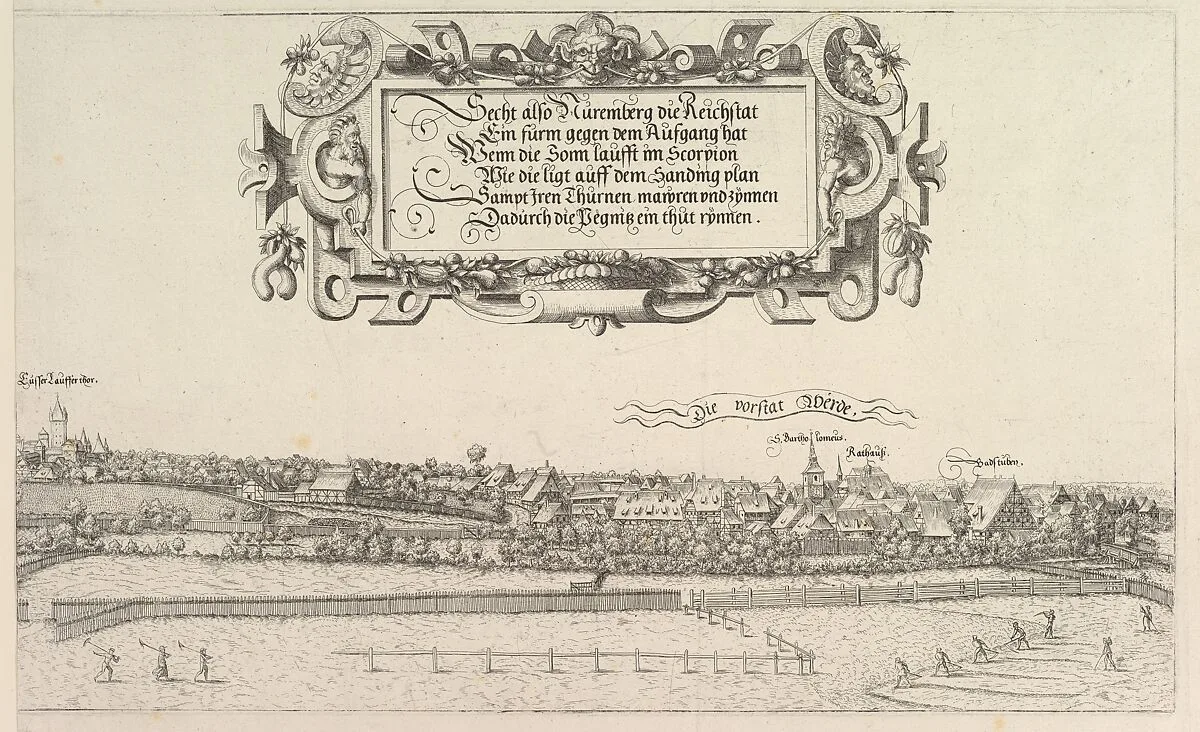 Secht also Nüremberg die Reichstat
Ein furm gegen dem Aufgang hat
Wenn die Sonn laufft im Scorpion
Wie die ligt auff dem Sanding plan
Sampt Iren Thürnen mawren vnd zÿnnen
Dadurch die Pegnitz ein thut rÿnnen.
Eusser Lauffer thor.
Die vorstat Werde.
S. Bartholomeus.
Rathauß.
Badstuben.